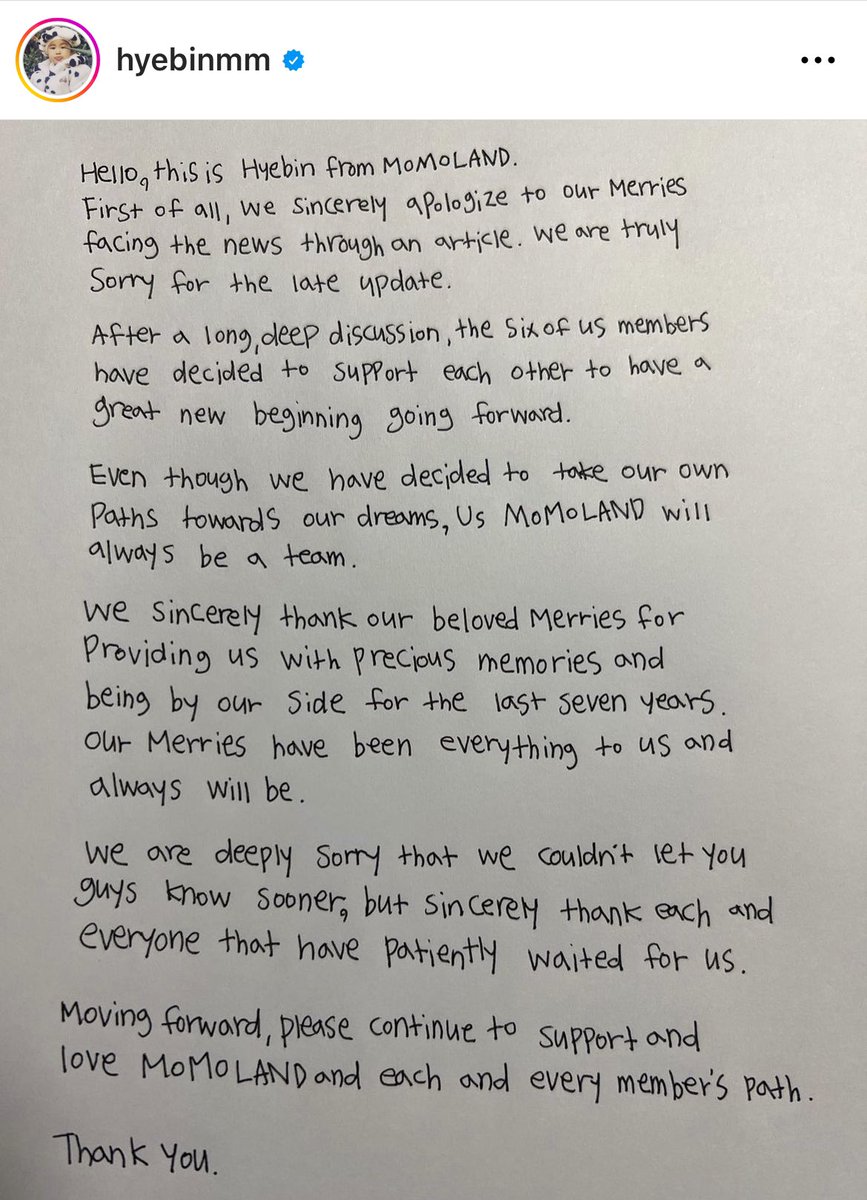 hyebinmm
Hello, this is Hyebin from MOMOLAND.
First of all, we sincerely apologize to our Merries
facing the news through an article. We are truly
Sorry for the late update.
After a long, deep discussion, the six of us members
have decided to support each other to have a
great new beginning going forward.
Even though we have decided to take our own
Paths towards our dreams, Us MOMOLAND will
always be a team.
We sincerely thank our beloved Merries for
Providing us with precious memories and
being by our side for the last seven years.
Our Merries have been everything to us and
always will be.
We are deeply sorry that we couldn't let you
guys know sooner, but sincerely thank each and
everyone that have patiently waited for us.
Moving forward, please continue to support and
love MOMOLAND and each and every member's path.
Thank You.